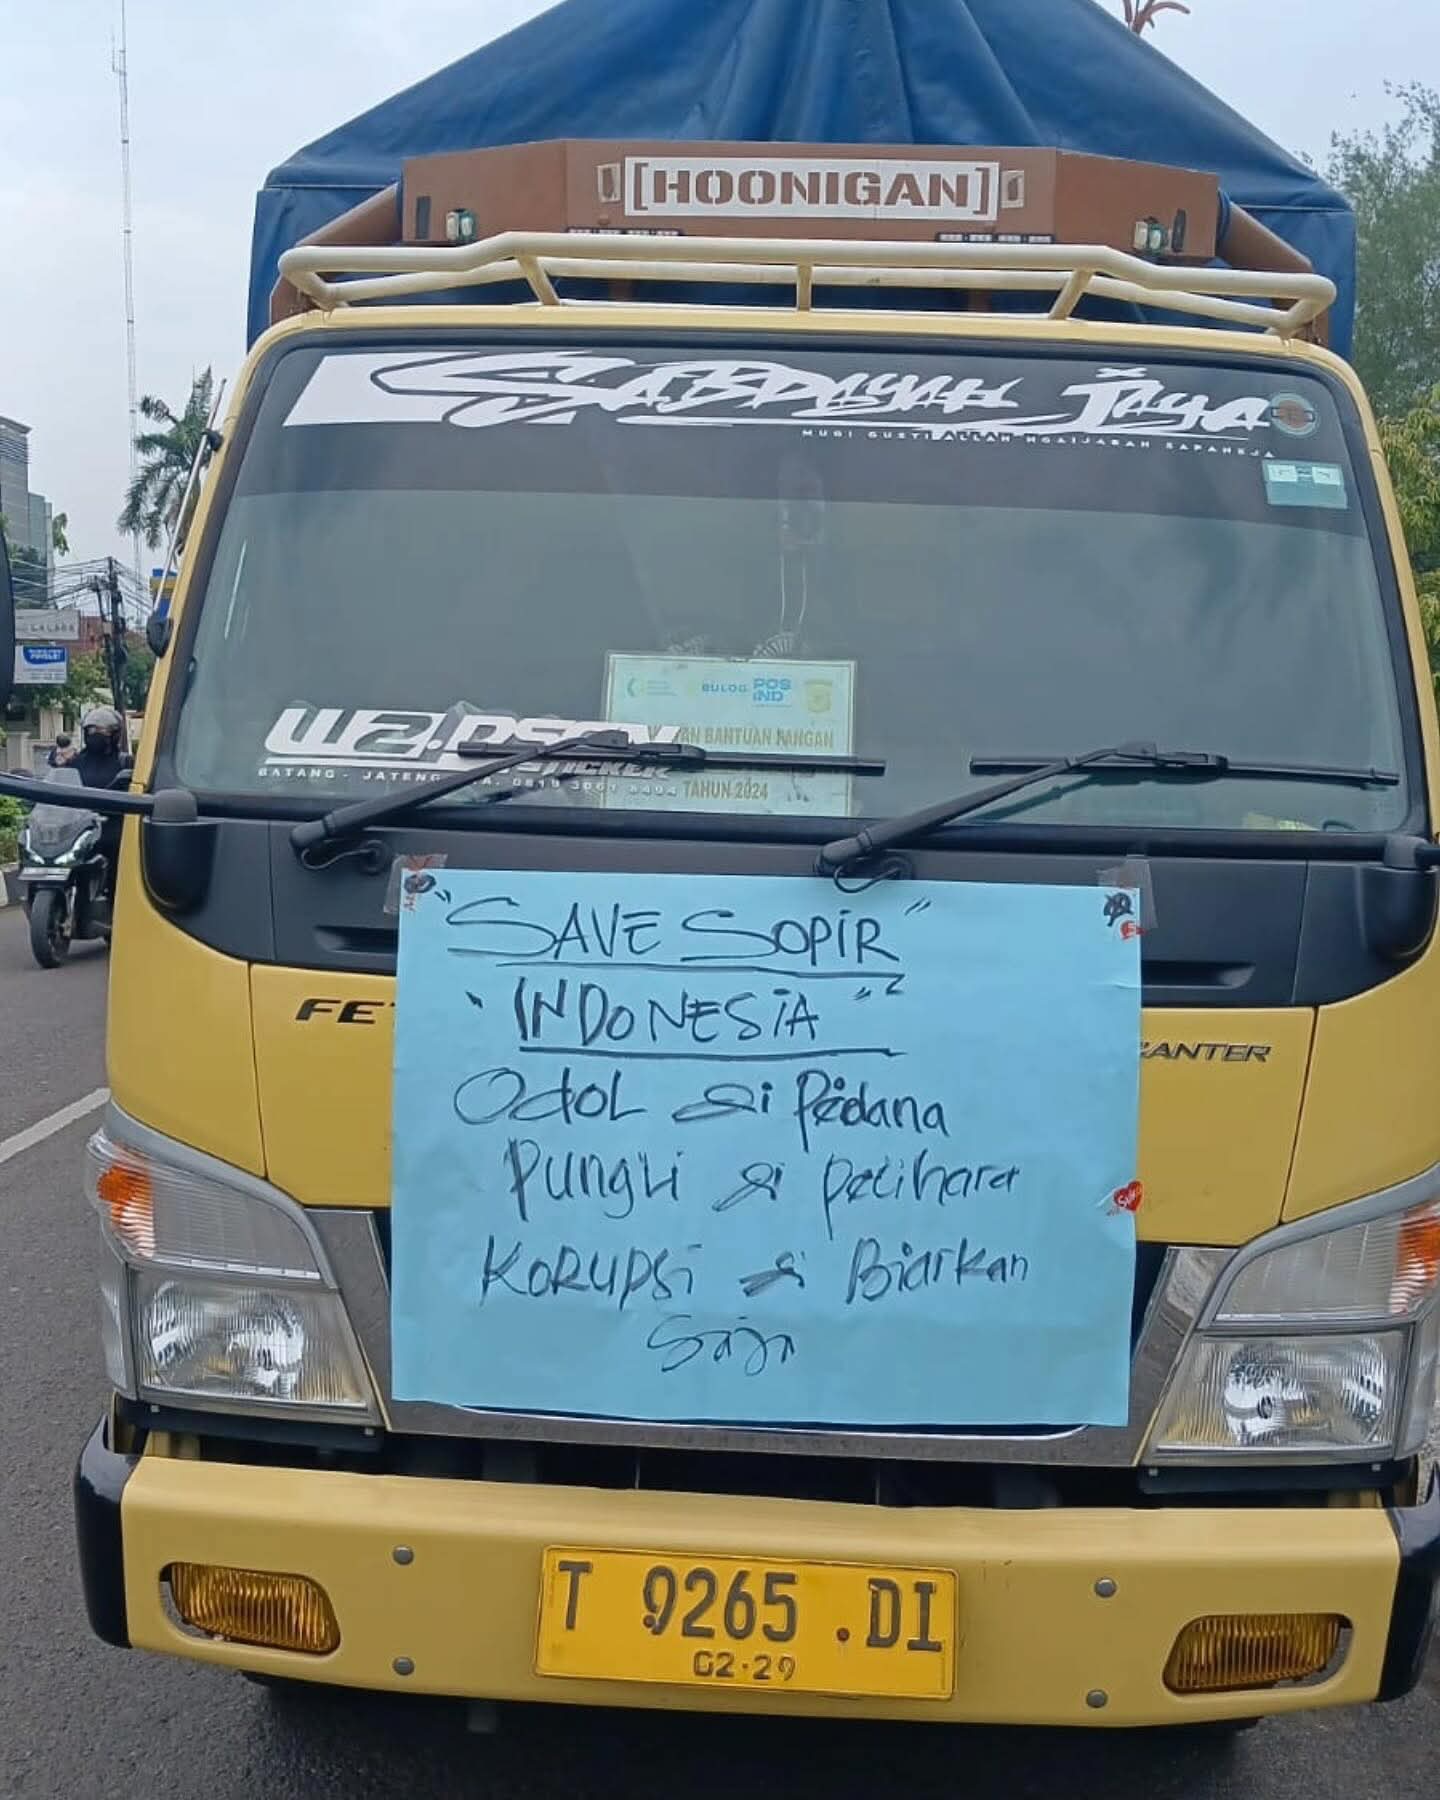 [HOONIGAN]
SABDALLAH JAYA
MUGI GUSTI ALLAH NGAIJABAH
BULOG POS IND
BANTUAN PANGAN
TAHUN 2024
BATANG - JATENG
STICKER
"SAVE SOPIR"
"INDONESIA"
Odol di Pidana
Pungli di pelihara
KORUPSi di Biarkan
Saja
FE
CANTER
T 9265 DI
02·29